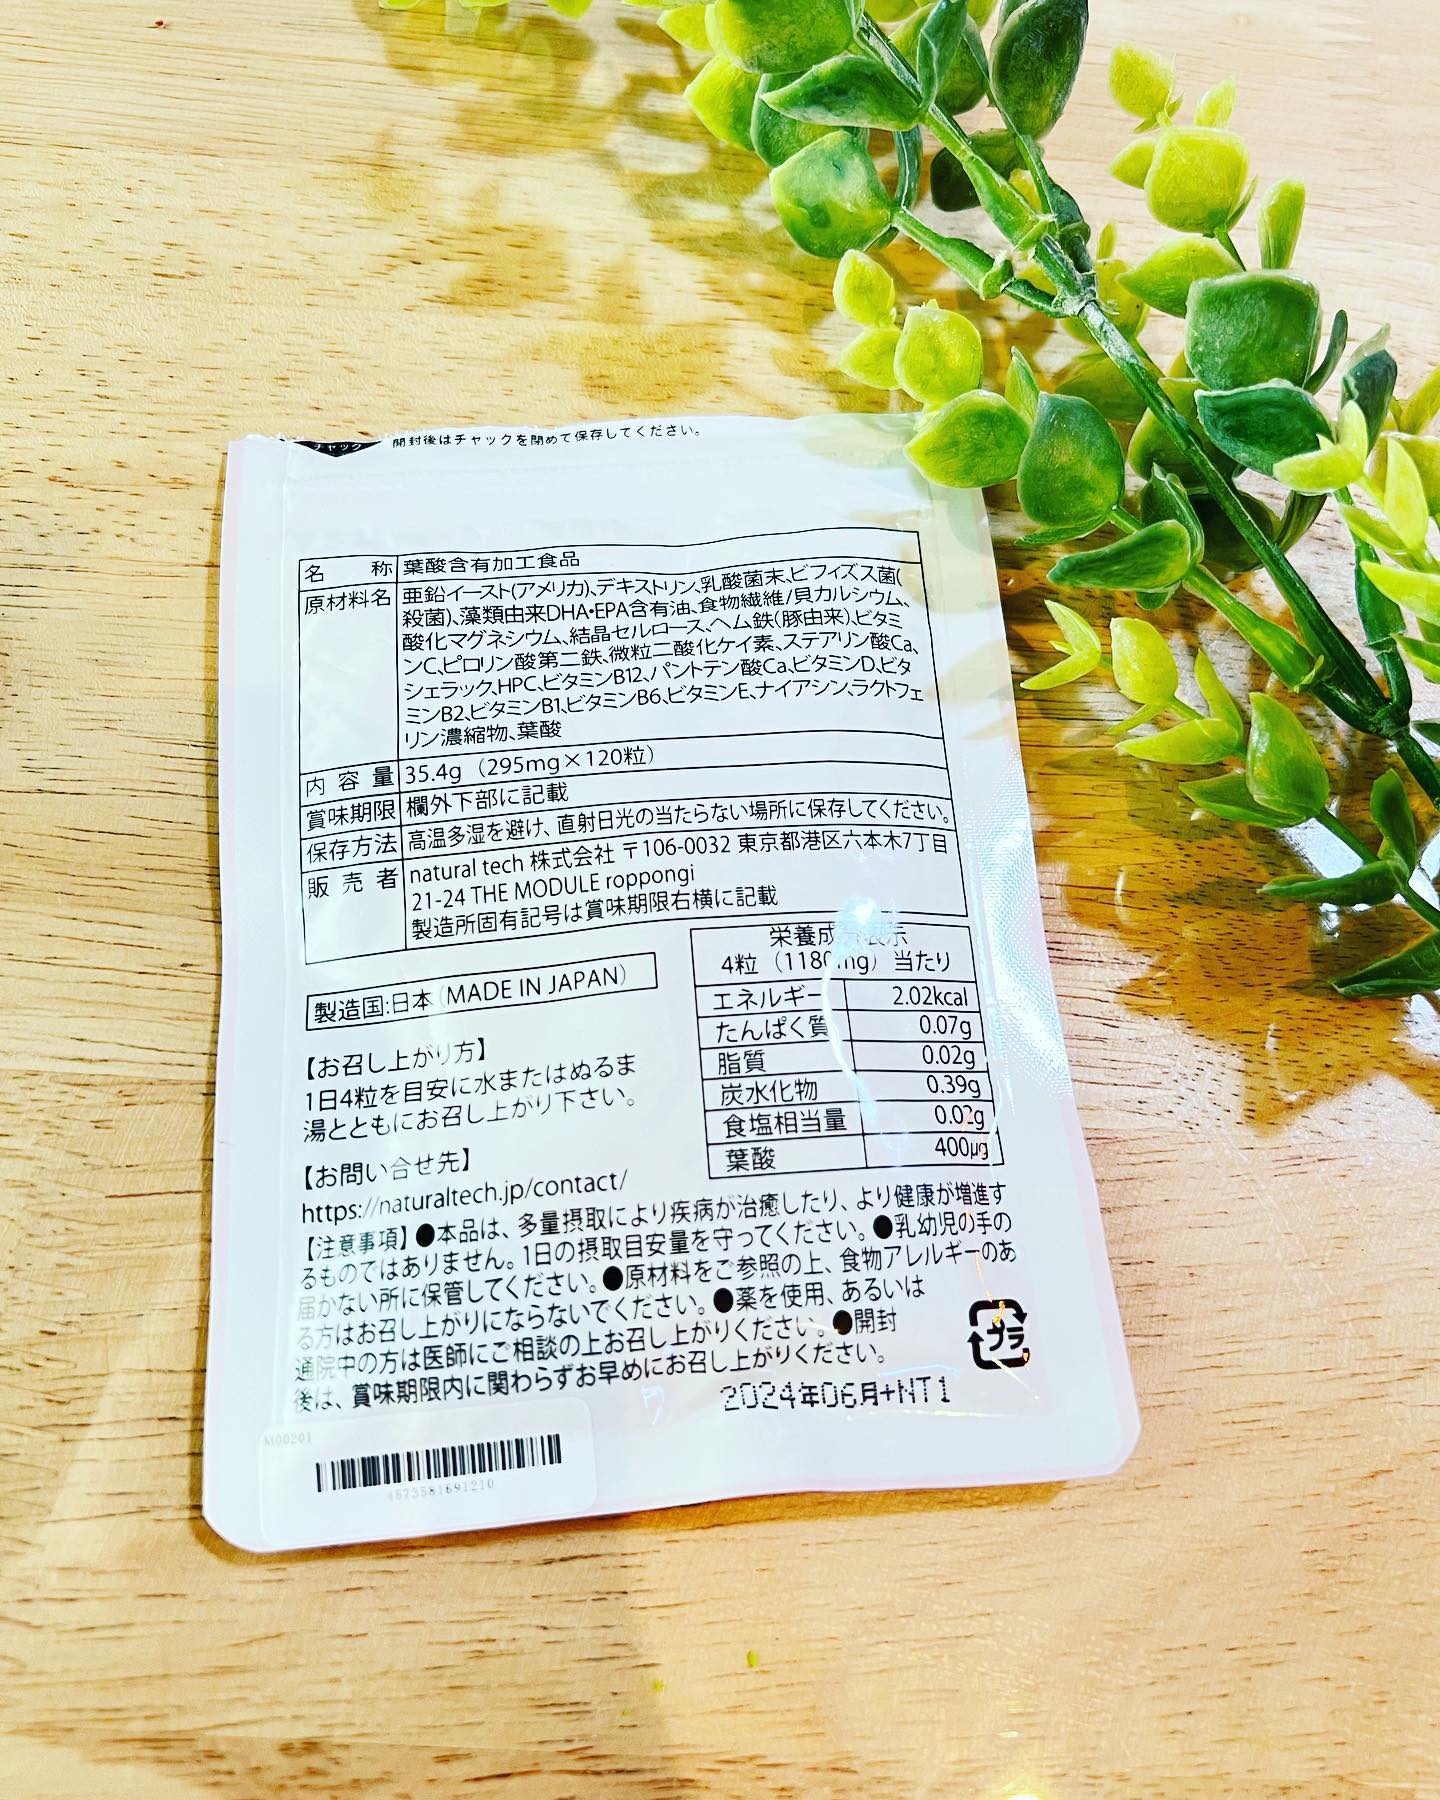 チャック 開封後はチャックを閉めて保存してください。
名称 葉酸含有加工食品
原材料名 亜鉛イースト(アメリカ)、デキストリン、乳酸菌末、ビフィズス菌(
殺菌)、藻類由来DHA・EPA含有油、食物繊維/貝カルシウム、
酸化マグネシウム、結晶セルロース、ヘム鉄(豚由来)、ビタミ
ンC、ピロリン酸第二鉄、微粒二酸化ケイ素、ステアリン酸Ca、
シェラック、HPC、ビタミンB12、パントテン酸Ca、ビタミンD、ビタ
ミンB2、ビタミンB1、ビタミンB6、ビタミンE、ナイアシン、ラクトフェ
リン濃縮物、葉酸
内容量 35.4g（295mg×120粒）
賞味期限 欄外下部に記載
保存方法 高温多湿を避け、直射日光の当たらない場所に保存してください。
販売者 natural tech 株式会社 〒106-0032 東京都港区六本木7丁目
21-24 THE MODULE roppongi
製造所固有記号は賞味期限右横に記載
製造国:日本（MADE IN JAPAN）
【お召し上がり方】
1日4粒を目安に水またはぬるま
湯とともにお召し上がり下さい。
【お問い合せ先】
https://naturaltech.jp/contact/
栄養成分表示
4粒（1180mg）当たり
エネルギー 2.02kcal
たんぱく質 0.07g
脂質 0.02g
炭水化物 0.39g
食塩相当量 0.02g
葉酸 400μg
【注意事項】●本品は、多量摂取により疾病が治癒したり、より健康が増進す
るものではありません。1日の摂取目安量を守ってください。●乳幼児の手の
届かない所に保管してください。●原材料をご参照の上、食物アレルギーのあ
る方はお召し上がりにならないでください。●薬を使用、あるいは
通院中の方は医師にご相談の上お召し上がりください。●開封
後は、賞味期限内に関わらずお早めにお召し上がりください。
プラ
2024年06月+NT1
M00201
4573581691210